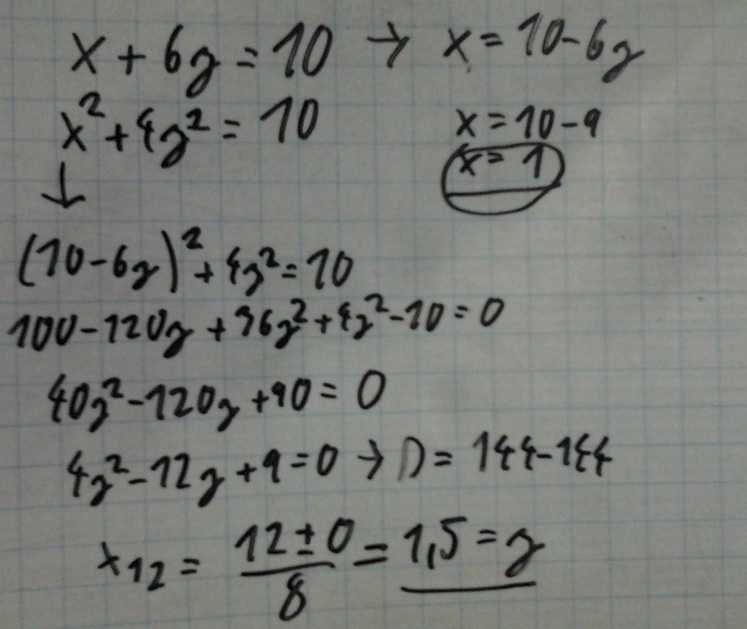 x + 6y = 10 → x = 10-6y
x² + 4y² = 10
x = 10-9
x = 1
↓
(10-6y)² + 4y² = 10
100-120y + 36y² + 4y² - 10 = 0
40y² - 120y + 90 = 0
4y² - 12y + 9 = 0 → D = 144-144
x₁₂ = (12 ± 0)/8 = 1,5 = y